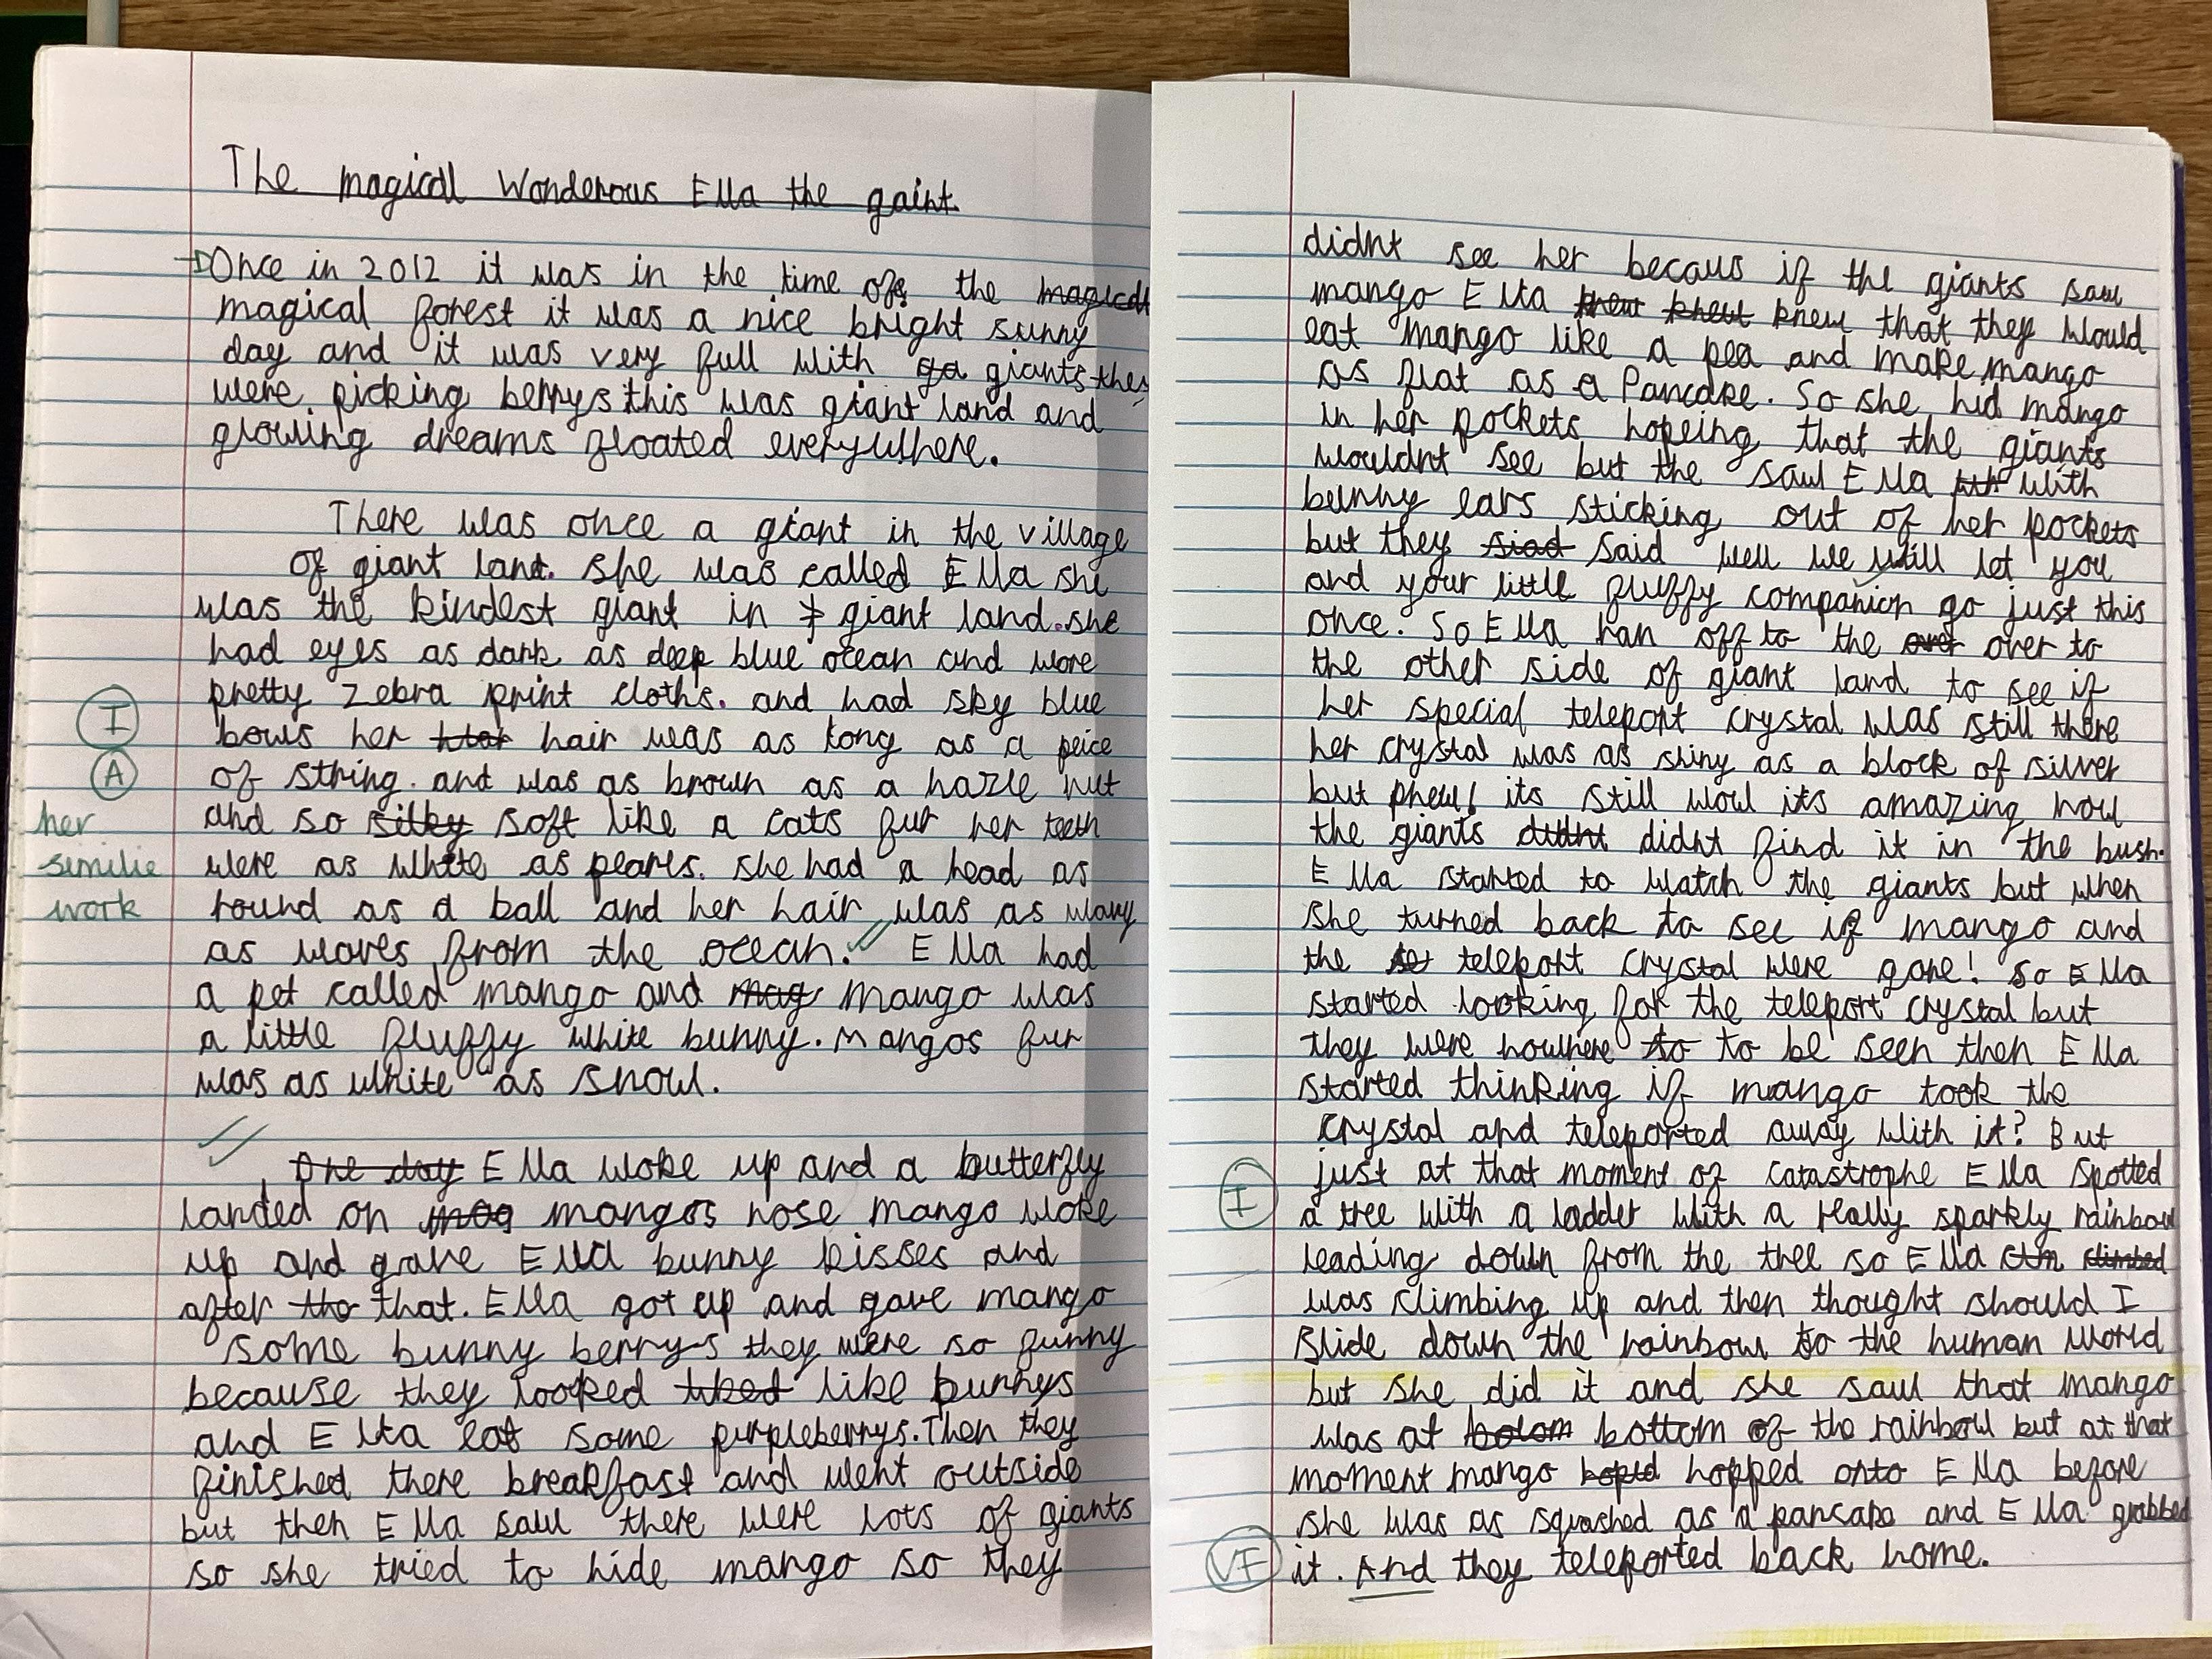 The magical Wonderous Ella the gaint
Once in 2012 it was in the time of the magical
magical forest it was a nice bright sunny
day and it was very full with ga giants they
were picking berrys this was giant land and
glowing dreams floated everywhere.
There was once a giant in the village
of giant land. she was called Ella she
was the kindest giant in giant land. she
had eyes as dark as deep blue ocean and wore
pretty zebra print cloths. and had sky blue
I
bows her hair was as long as a peice
A
of string. and was as brown as a hazle nut
her
and so silky soft like a cats fur her teeth
similie
were as white as pearls. she had a head as
work
round as a ball and her hair was as wavy
as waves from the ocean. Ella had
a pet called mango and mag mango was
a little fluffy white bunny. mangos fur
was as white as snow.
One day Ella woke up and a butterfly
landed on mag mangos nose mango woke
up and grave Ella bunny kisses and
after tho that. Ella got up and gave mango
some bunny berrys they were so funny
because they looked liked like bunnys
and Ella eat some purpleberrys. Then they
finished there breakfast and went outside
but then Ella saw there were lots of giants
so she tried to hide mango so they
didnt see her becaus if the giants saw
mango Ella knew knew knew that they would
eat mango like a pea and make mango
as flat as a Pancake. So she hid mango
in her pockets hopeing that the giants
wouldnt see but the saw Ella with
bunny ears sticking out of her pockets
but they siad said well we will let you
and your little fluffy companion go just this
once. So Ella ran off to the over over to
the other side of giant land to see if
her special teleport crystal was still there
her crystal was as shiny as a block of silver
but phew! its still wow its amazing how
the giants didnt didnt find it in the bush.
Ella started to watch the giants but when
she turned back to see if mango and
the teleport crystal were gone! so Ella
started looking for the teleport crystal but
they were nowhere to to be seen then Ella
started thinking if mango took the
crystal and teleported away with it? But
just at that moment of catastrophe Ella spotted
I
a tree with a ladder with a really sparkly rainbow
leading down from the tree so Ella climbed
was climbing up and then thought should I
slide down the rainbow to the human world
but she did it and she saw that mango
was at botom bottom of the rainbow but at that
moment mango hoped hopped onto Ella before
she was as squashed as a pancake and Ella grabbed
VF
it. And they teleported back home.